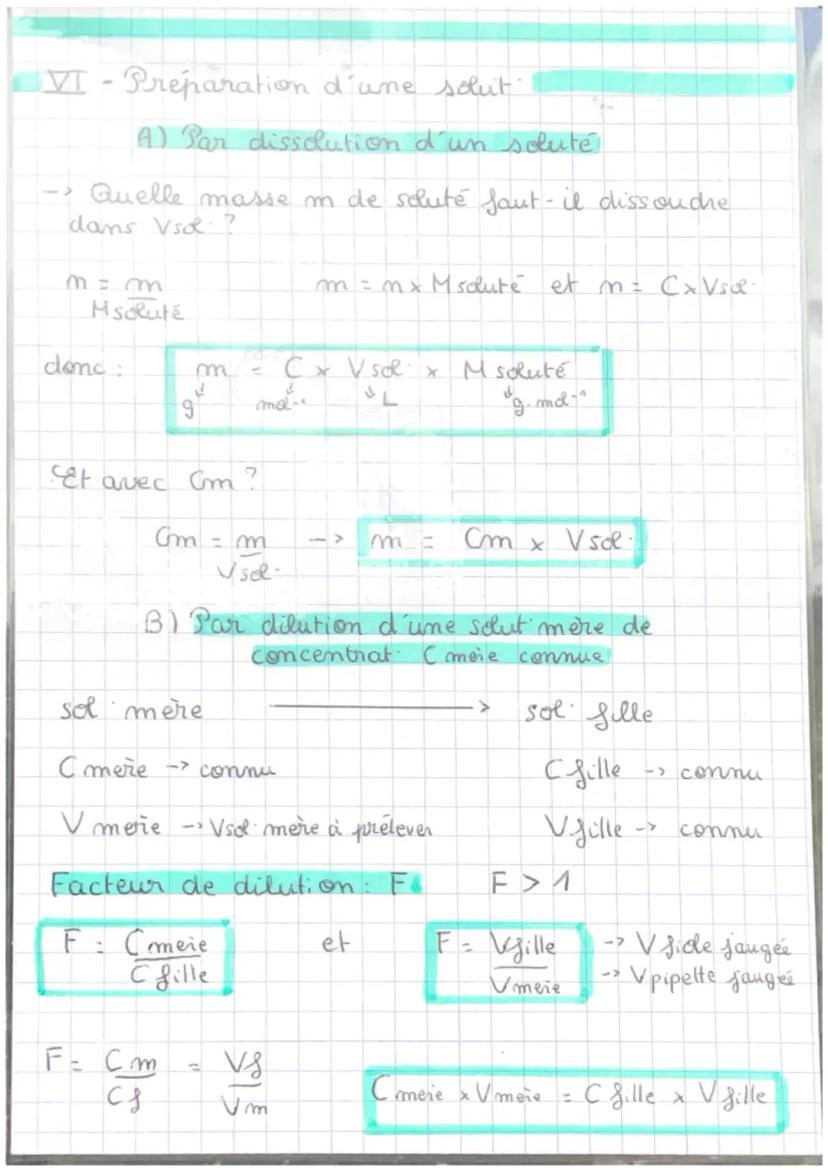 VI - Préparation d'une solut°
A) Par dissolution d'un soluté
-> Quelle masse m de soluté faut-il dissoudre
dans Vsol° ?
n = m / Msoluté m = n x Msoluté et n = C x Vsol°
donc : m = C x Vsol° x M soluté
g mol-¹ L g.mol-¹
Et avec Cm ?
Cm = m / Vsol° -> m = Cm x Vsol°
B) Par dilution d'une solut° mère de
concentrat° C mère connue
sol° mère -> sol° fille
C mère -> connu C fille -> connu
V mère -> Vsol° mère à prélever V fille -> connu
Facteur de dilution : F F > 1
F = C mère / C fille et F = V fille / V mère -> V fiole jaugée
-> V pipette jaugée
F = Cm / Cf = Vf / Vm C mère x V mère = C fille x V fille